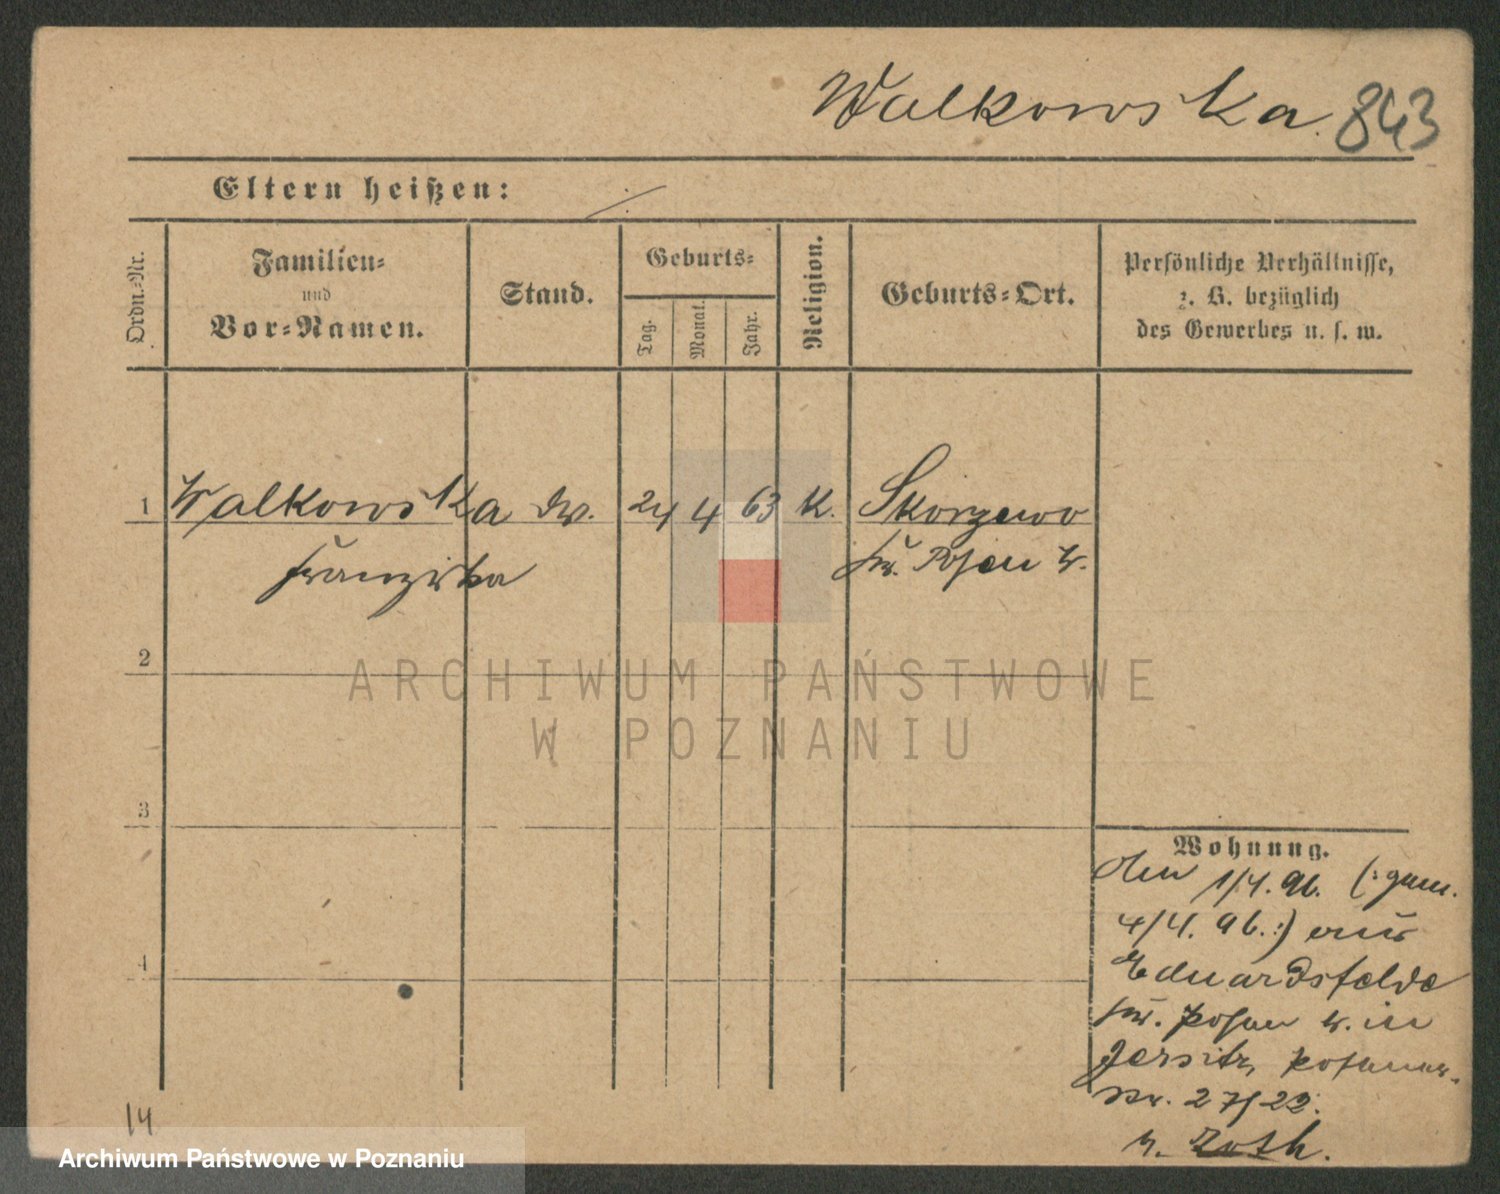 Walkowska. 843
Eltern heißen:
Ordn.-Nr.
Familien-
und
Vor-Namen.
Stand.
Geburts-
Tag.
Monat.
Jahr.
Religion.
Geburts-Ort.
Persönliche Verhältnisse,
z. B. bezüglich
des Gewerbes u. s. w.
1 Walkowska 24 4 63 K. Skorzewo
Franziska Kr. Posen W.
2
ARCHIWUM PAŃSTWOWE
W POZNANIU
3
Wohnung.
den 1/4. 96. (: gem.
4/4. 96. :) aus
4
Eduardsfelde
Kr. Posen W. in
Jersitz, Posener-
Str. 27/22.
b. Roth.
14
Archiwum Państwowe w Poznaniu